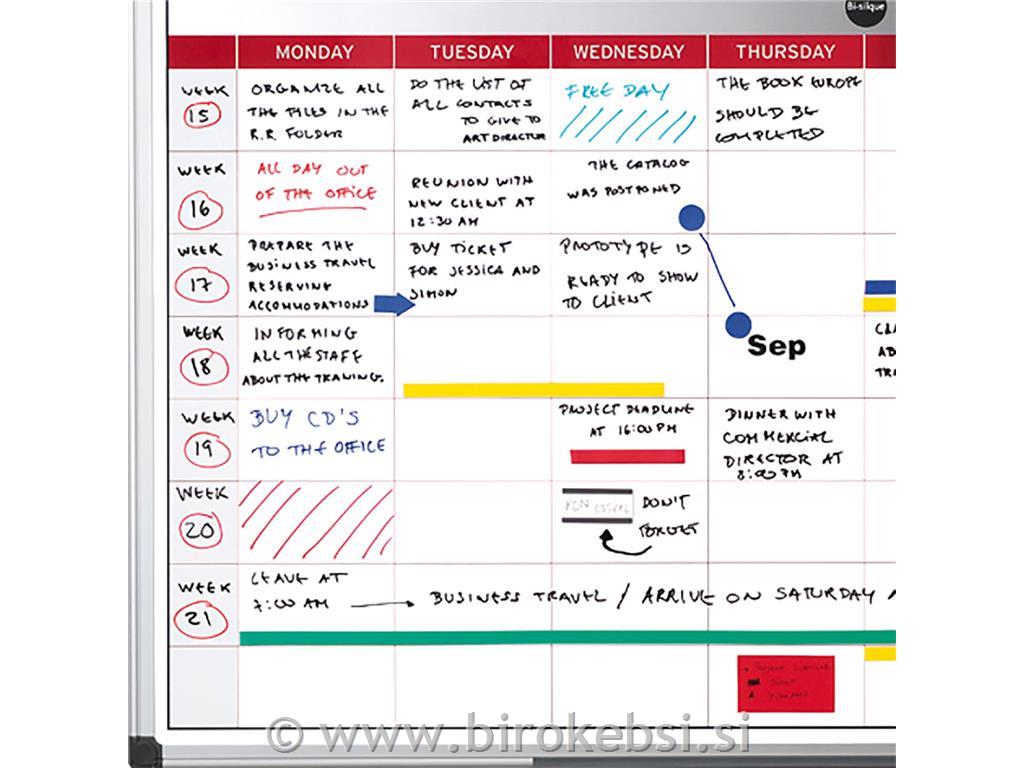 Bi-silque
MONDAY TUESDAY WEDNESDAY THURSDAY
WEEK
15
ORGANIZE ALL
THE FILES IN THE
R.R. FOLDER
DO THE LIST OF
ALL CONTACTS
TO GIVE TO
ART DIRECTOR
FREE DAY
THE BOOK EUROPE
SHOULD BE
COMPLETED
WEEK
16
ALL DAY OUT
OF THE OFFICE
REUNION WITH
NEW CLIENT AT
12:30 AM
THE CATALOG
WAS POSTPONED
WEEK
17
PREPARE THE
BUSINESS TRAVEL
RESERVING
ACCOMMODATIONS
BUY TICKET
FOR JESSICA AND
SIMON
PROTOTYPE IS
READY TO SHOW
TO CLIENT
WEEK
18
INFORMING
ALL THE STAFF
ABOUT THE TRANING.
Sep
WEEK
19
BUY CD'S
TO THE OFFICE
PROJECT DEADLINE
AT 16:00 PM
DINNER WITH
COMMERCIAL
DIRECTOR AT
8:00 PM
WEEK
20
DON'T
FORGET
WEEK
21
LEAVE AT
7:00 AM
BUSINESS TRAVEL / ARRIVE ON SATURDAY
© www.birokebsi.si